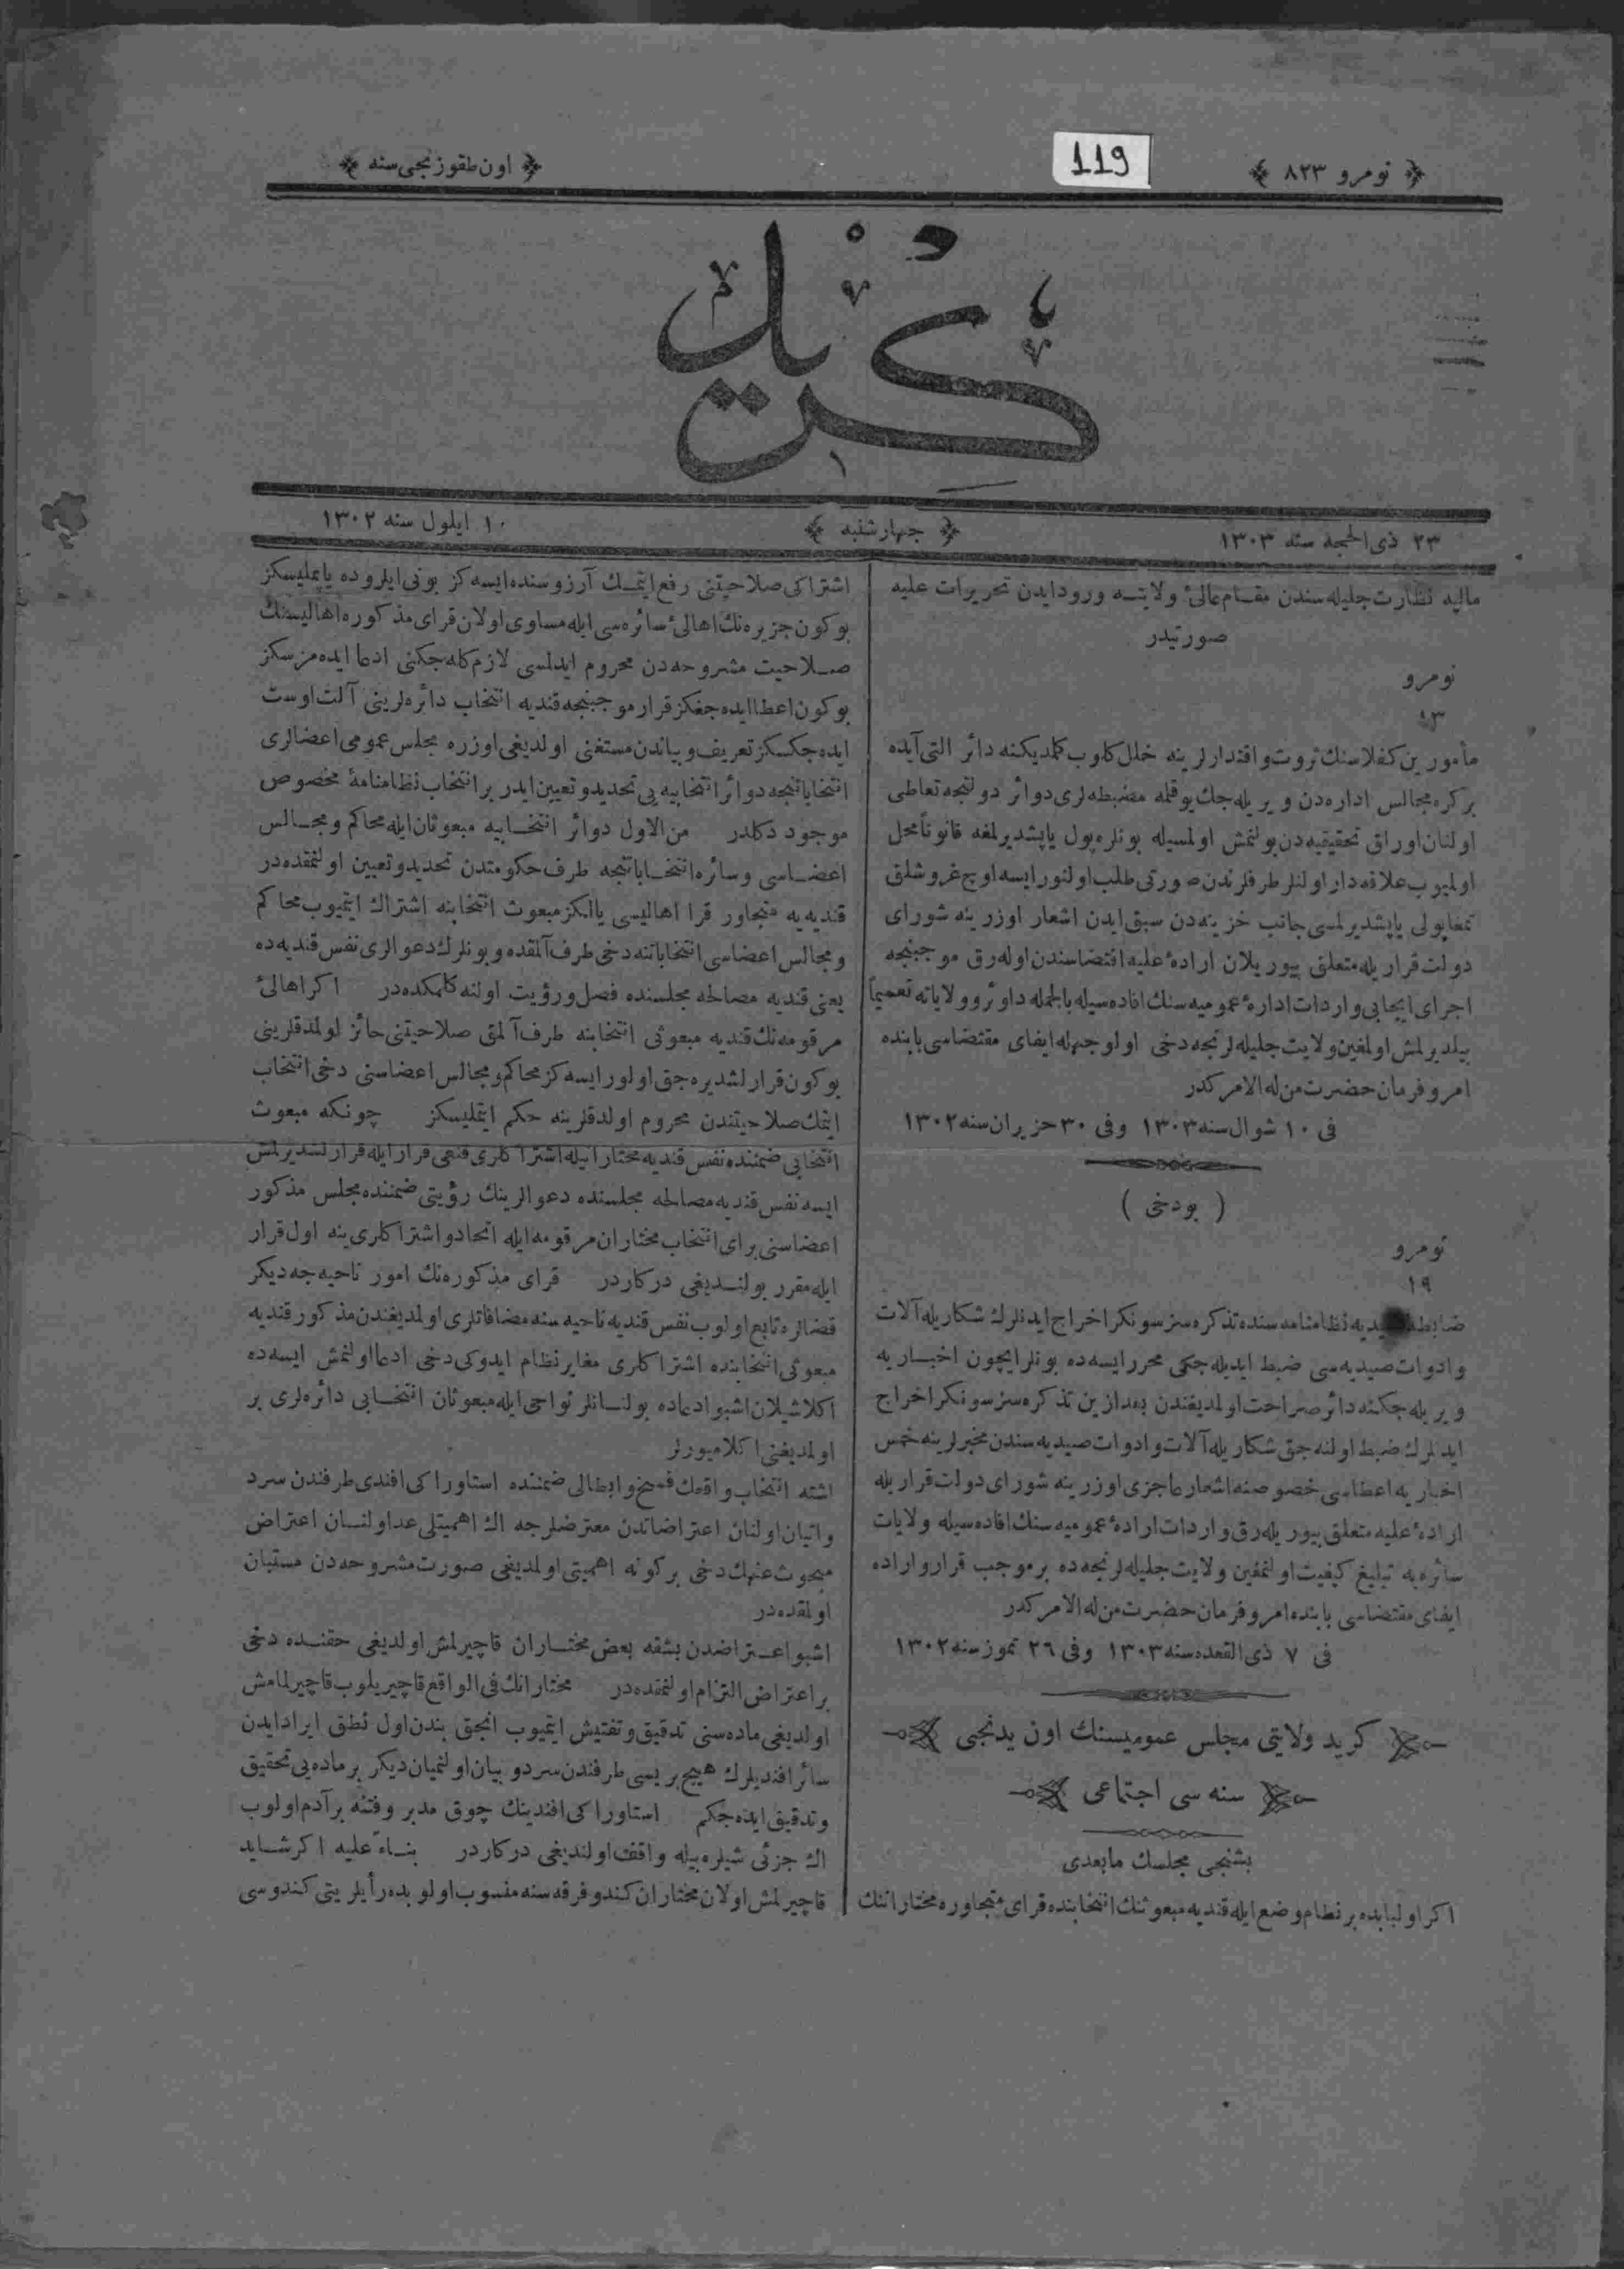 نومرو ٨٢٣
119
اون طقوزنجی سنه
كريد
٢٣ ذی الحجه سنه ١٣٠٣
چهارشنبه
١٠ ايلول سنه ١٣٠٢
ماليه نظارت جليله سندن مقام عالئ ولايته ورود ايدن تحريرات عليه
صورتيدر
نومرو
١٣
مأمورين كفلاسنك ثروت و اقتدارلرينه خلل كلوب كلمديكنه دائر التی آيده
بركره مجالس اداره دن ويريله جك يوقلمه مضبطه لری دوائر دولتجه تعاطی
اولنان اوراق تحقيقيه دن بولنمش اولمسيله بونلره پول ياپشديرلمغه قانوناً محل
اوليوب علاقه دار اولنلر طرفلرندن صورتی طلب اولنور ايسه اوچ غروشلق
تمغا پولی ياپشديرلمسی جانب خزينه دن سبق ايدن اشعار اوزرينه شورای
دولت قراريله متعلق بيوريلان ارادۀ عليه اقتضاسندن اوله رق موجبنجه
اجرای ايجابی واردات ادارۀ عموميه سنك افاده سيله بالجمله دوائر و ولاياته تعميماً
بيلديرلمش اولمغين ولايت جليله لرنجه دخی اولوجهله ايفای مقتضاسی بابنده
امر و فرمان حضرت من له الامركدر
فی ١٠ شوال سنه ١٣٠٣ وفی ٣٠ حزيران سنه ١٣٠٢
( بودخی )
نومرو
١٩
ضابطۀ صيديه نظامنامه سنده تذكره سز سونكر اخراج ايدنلرك شكاريله آلات
وادوات صيديه سی ضبط ايديله جكی محرر ايسه ده بونلر ايچون اخباريه
ويريله جكنه دائر صراحت اولمديغندن بعدازين تذكره سز سونكر اخراج
ايدنلرك ضبط اولنه جق شكاريله آلات و ادوات صيديه سندن مخبرلرينه خمس
اخباريه اعطاسی خصوصنه اشعار عاجزی اوزرينه شورای دولت قراريله
ارادۀ عليه متعلق بيوريله رق واردات ادارۀ عموميه سنك افاده سيله ولايات
سائره يه تبليغ كيفيت اولنمغين ولايت جليله لرنجه ده برموجب قرار و اراده
ايفای مقتضاسی بابنده امر و فرمان حضرت من له الامركدر
فی ٧ ذی القعده سنه ١٣٠٣ وفی ٢٦ تموز سنه ١٣٠٢
كريد ولايتی مجلس عموميسنك اون يدنجی
سنه سی اجتماعی
بشنجی مجلسك مابعدی
اكر اولبابده بر نظام وضع ايله قنديه مبعوثنك انتخابنده قرای متجاوره مختارانك
اشتراكی صلاحيتنی رفع ايتمك آرزوسنده ايسه كز بونی ايلروده ياپمليسكز
بوكون جزيره نك اهالئ سائره سی ايله مساوی اولان قرای مذكوره اهاليسنك
صلاحيت مشروحه دن محروم ايدلمسی لازم كله جكنی ادعا ايده مزسكز
بوكون اعطا ايده جغكز قرار موجبنجه قنديه انتخاب دائره لرينی آلت اوست
ايده جكسكز تعريف و بياندن مستغنی اولديغی اوزره مجلس عمومی اعضالری
انتخاباتنجه دوائر انتخابيه يی تحديد و تعيين ايدر بر انتخاب نظامنامۀ مخصوص
موجود دكلدر من الاول دوائر انتخابيه مبعوثان ايله محاكم و مجالس
اعضاسی و سائره انتخاباتنجه طرف حكومتدن تحديد و تعيين اولنمقده در
قنديه يه متجاور قرا اهاليسی يالكز مبعوث انتخابنه اشتراك ايتميوب محاكم
و مجالس اعضاسی انتخاباتنه دخی طرف آلمقده و بونلرك دعوالری نفس قنديه ده
يعنی قنديه مصالحه مجلسنده فصل و رؤيت اولنه كلمكده در اكر اهالئ
مرقومه نك قنديه مبعوثی انتخابنه طرف آلمق صلاحيتنی حائز اولمدقلرينی
بوكون قرارلشديره جق اولور ايسه كز محاكم و مجالس اعضاسنی دخی انتخاب
ايتمك صلاحيتندن محروم اولدقلرينه حكم ايتمليسكز چونكه مبعوث
انتخابی ضمننده نفس قنديه مختارانيله اشتراكلری قنغی قرار ايله قرارلشديرلمش
ايسه نفس قنديه مصالحه مجلسنده دعوالرينك رؤيتی ضمننده مجلس مذكور
اعضاسنی برای انتخاب مختاران مرقومه ايله اتحاد و اشتراكلری ينه اول قرار
ايله مقرر بولنديغی دركاردر قرای مذكوره نك امور ناحيه جه ديكر
قضالره تابع اولوب نفس قنديه ناحيه سنه مضافاتلری اولمديغندن مذكور قنديه
مبعوثی انتخابنده اشتراكلری مغاير نظام ايدوكی دخی ادعا اولنمش ايسه ده
اكلاشيلان اشبو ادعاده بولنانلر نواحی ايله مبعوثان انتخابی دائره لری بر
اولمديغنی اكلاميورلر
اشته انتخاب واقعك فسخ و ابطالی ضمننده استاوراكی افندی طرفندن سرد
و اتيان اولنان اعتراضاتدن معترضلرجه اك اهميتلی عد اولنان اعتراض
مبحوث عنهك دخی بركونه اهميتی اولمديغی صورت مشروحه دن مستبان
اولمقده در
اشبو اعتراضدن بشقه بعض مختاران قاچيرلمش اولديغی حقنده دخی
بر اعتراض التزام اولنمقده در مختارانك فی الواقع قاچيريلوب قاچيرلمامش
اولديغی ماده سنی تدقيق و تفتيش ايتميوب انجق بندن اول نطق ايراد ايدن
سائر افنديلرك هيچ بريسی طرفندن سرد و بيان اولنميان ديكر بر ماده يی تحقيق
و تدقيق ايده جكم استاوراكی افندينك چوق مدبر و فتنه بر آدم اولوب
اك جزئی شيلره بيله واقف اولنديغی دركاردر بناءً عليه اكر شايد
قاچيرلمش اولان مختاران كندو فرقه سنه منسوب اولوبده رأيلريتی كندوسی